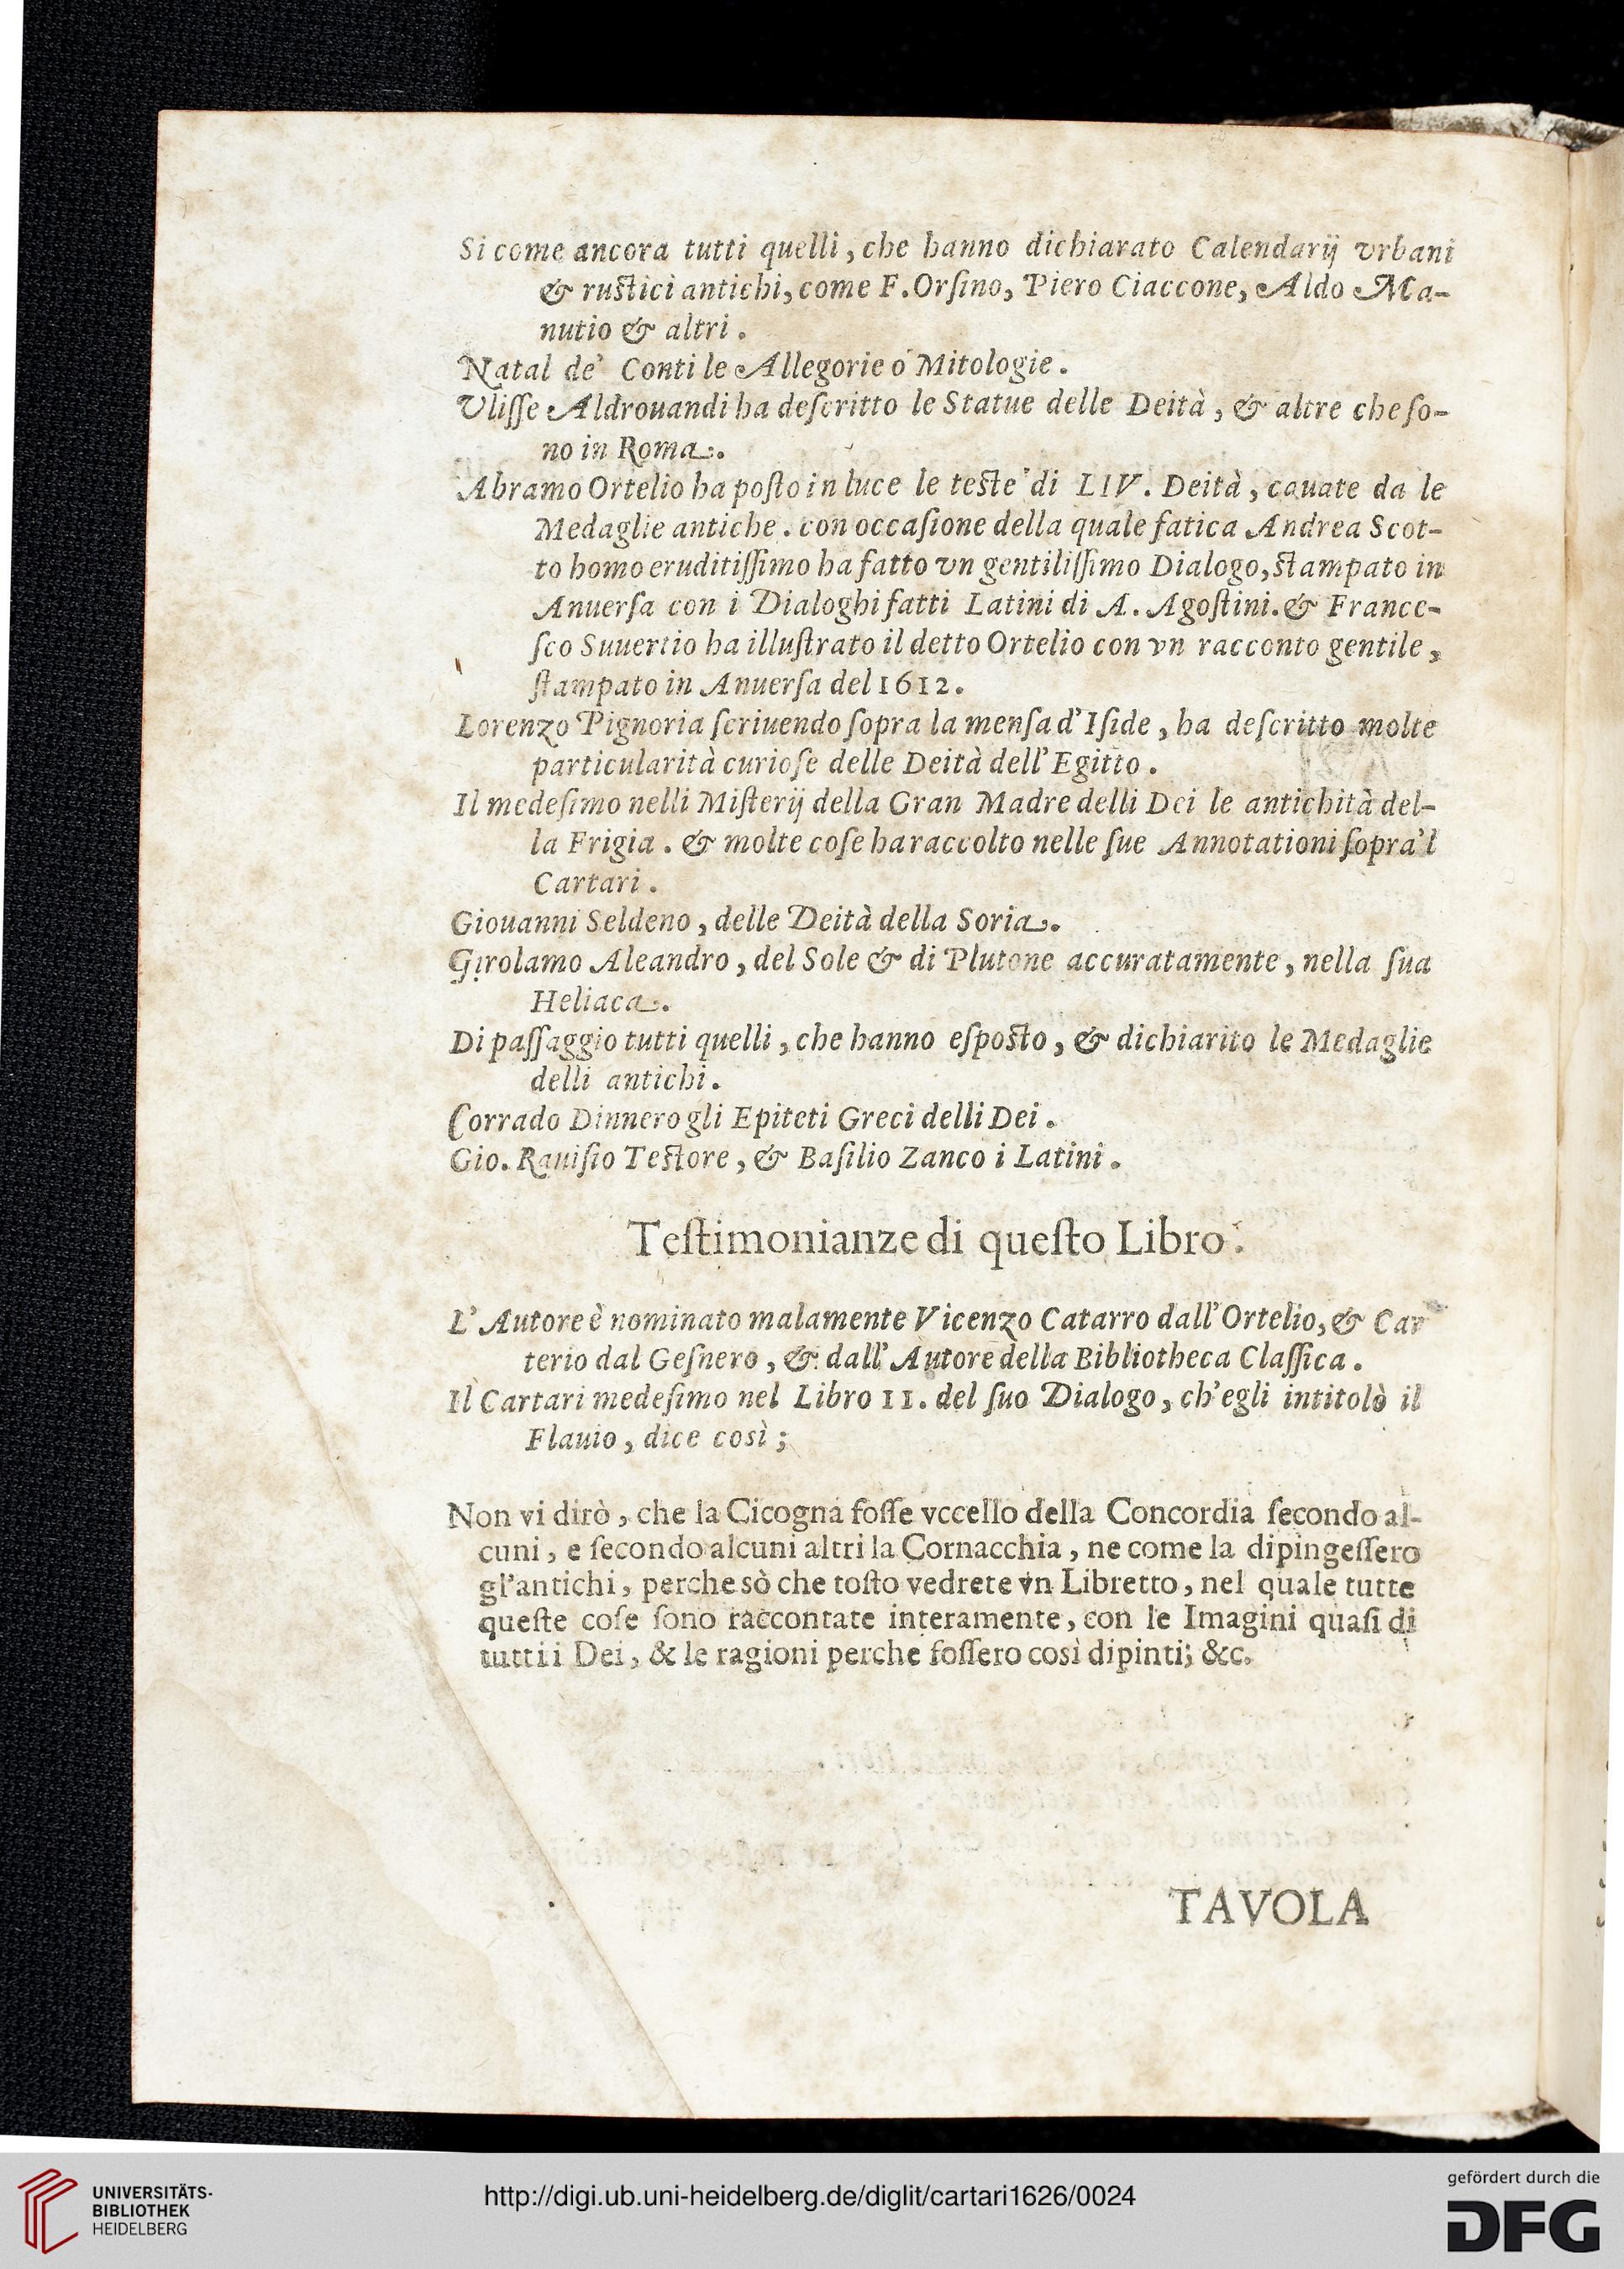 Si come ancora tutti quelli, che hanno dichiarato Calendarij vrbani
& rustici antichi, come F. Orſino, Piero Ciaccone, Aldo Ma-
nutio & altri.
Natal de' Conti le Allegorie ò Mitologie.
Vliſſe Aldrouandi ha deſcritto le Statue delle Deità, & altre che ſo-
no in Roma.
Abramo Ortelio ha poſto in luce le teste di LIV. Deità, cauate da le
Medaglie antiche. con occaſione della quale fatica Andrea Scot-
to homo eruditiſſimo ha fatto vn gentiliſſimo Dialogo, stampato in
Anuerſa con i Dialoghi fatti Latini di A. Agoſtini. & France-
ſco Suuertio ha illuſtrato il detto Ortelio con vn racconto gentile,
ſtampato in Anuerſa del 1612.
Lorenzo Pignoria ſcriuendo ſopra la menſa d'Iſide, ha deſcritto molte
particularità curioſe delle Deità dell'Egitto.
Il medeſimo nelli Miſterij della Gran Madre delli Dei le antichità del-
la Frigia. & molte coſe ha raccolto nelle ſue Annotationi ſopra'l
Cartari.
Giouanni Seldeno, delle Deità della Soria.
Girolamo Aleandro, del Sole & di Plutone accuratamente, nella ſua
Heliaca.
Di paſſaggio tutti quelli, che hanno eſposto, & dichiarito le Medaglie
delli antichi.
Corrado Dinnero gli Epiteti Greci delli Dei.
Gio. Rauiſio Testore, & Baſilio Zanco i Latini.
Teſtimonianze di queſto Libro.
L'Autore è nominato malamente Vicenzo Catarro dall'Ortelio, & Car
terio dal Geſnero, & dall'Autore della Bibliotheca Claſſica.
Il Cartari medeſimo nel Libro II. del ſuo Dialogo, ch'egli intitolò il
Flauio, dice così;
Non vi dirò, che la Cicogna foſſe vccello della Concordia ſecondo al-
cuni, e ſecondo alcuni altri la Cornacchia, ne come la dipingeſſero
gl'antichi, perche sò che toſto vedrete vn Libretto, nel quale tutte
queſte coſe ſono raccontate interamente, con le Imagini quaſi di
tutti i Dei, & le ragioni perche foſſero così dipinti; &c.
TAVOLA
UNIVERSITÄTS-
BIBLIOTHEK
HEIDELBERG
http://digi.ub.uni-heidelberg.de/diglit/cartari1626/0024
gefördert durch die
DFG